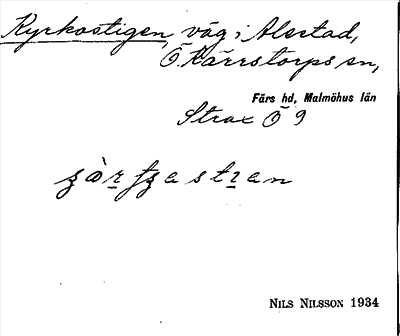 Kyrkostigen, väg i Alestad,
Ö. Kärrstorps sn,
Färs hd, Malmöhus län
Strax Ö 9
NILS NILSSON 1934